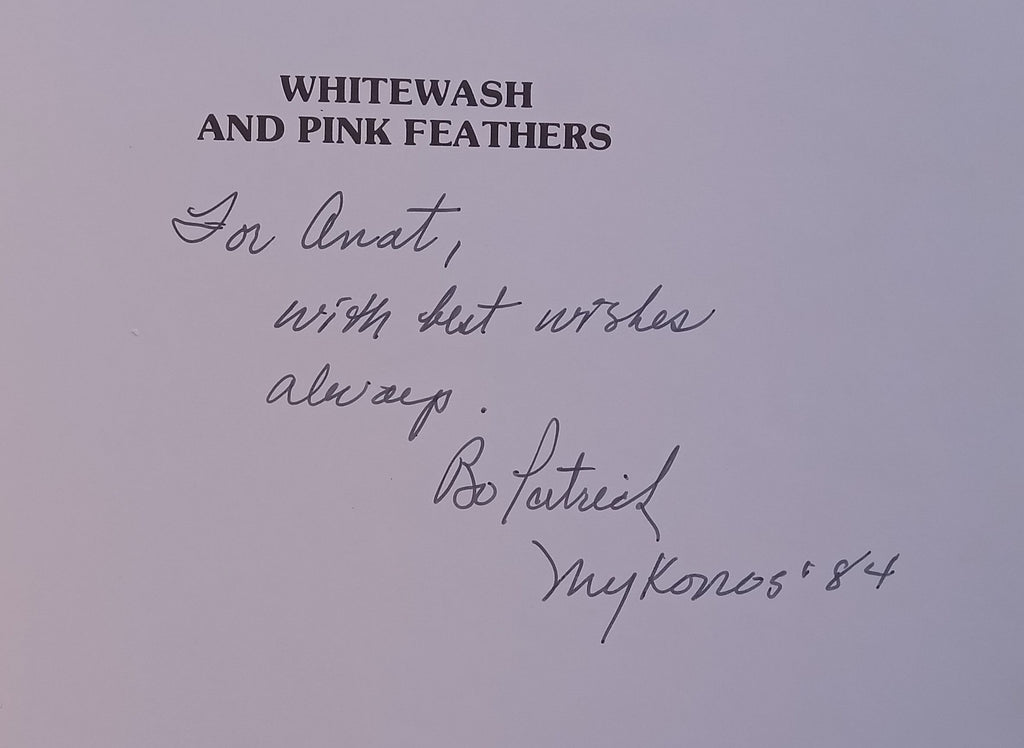 WHITEWASH
AND PINK FEATHERS
For Anat,
with best wishes
always.
Bo Patrick
Mykonos '84